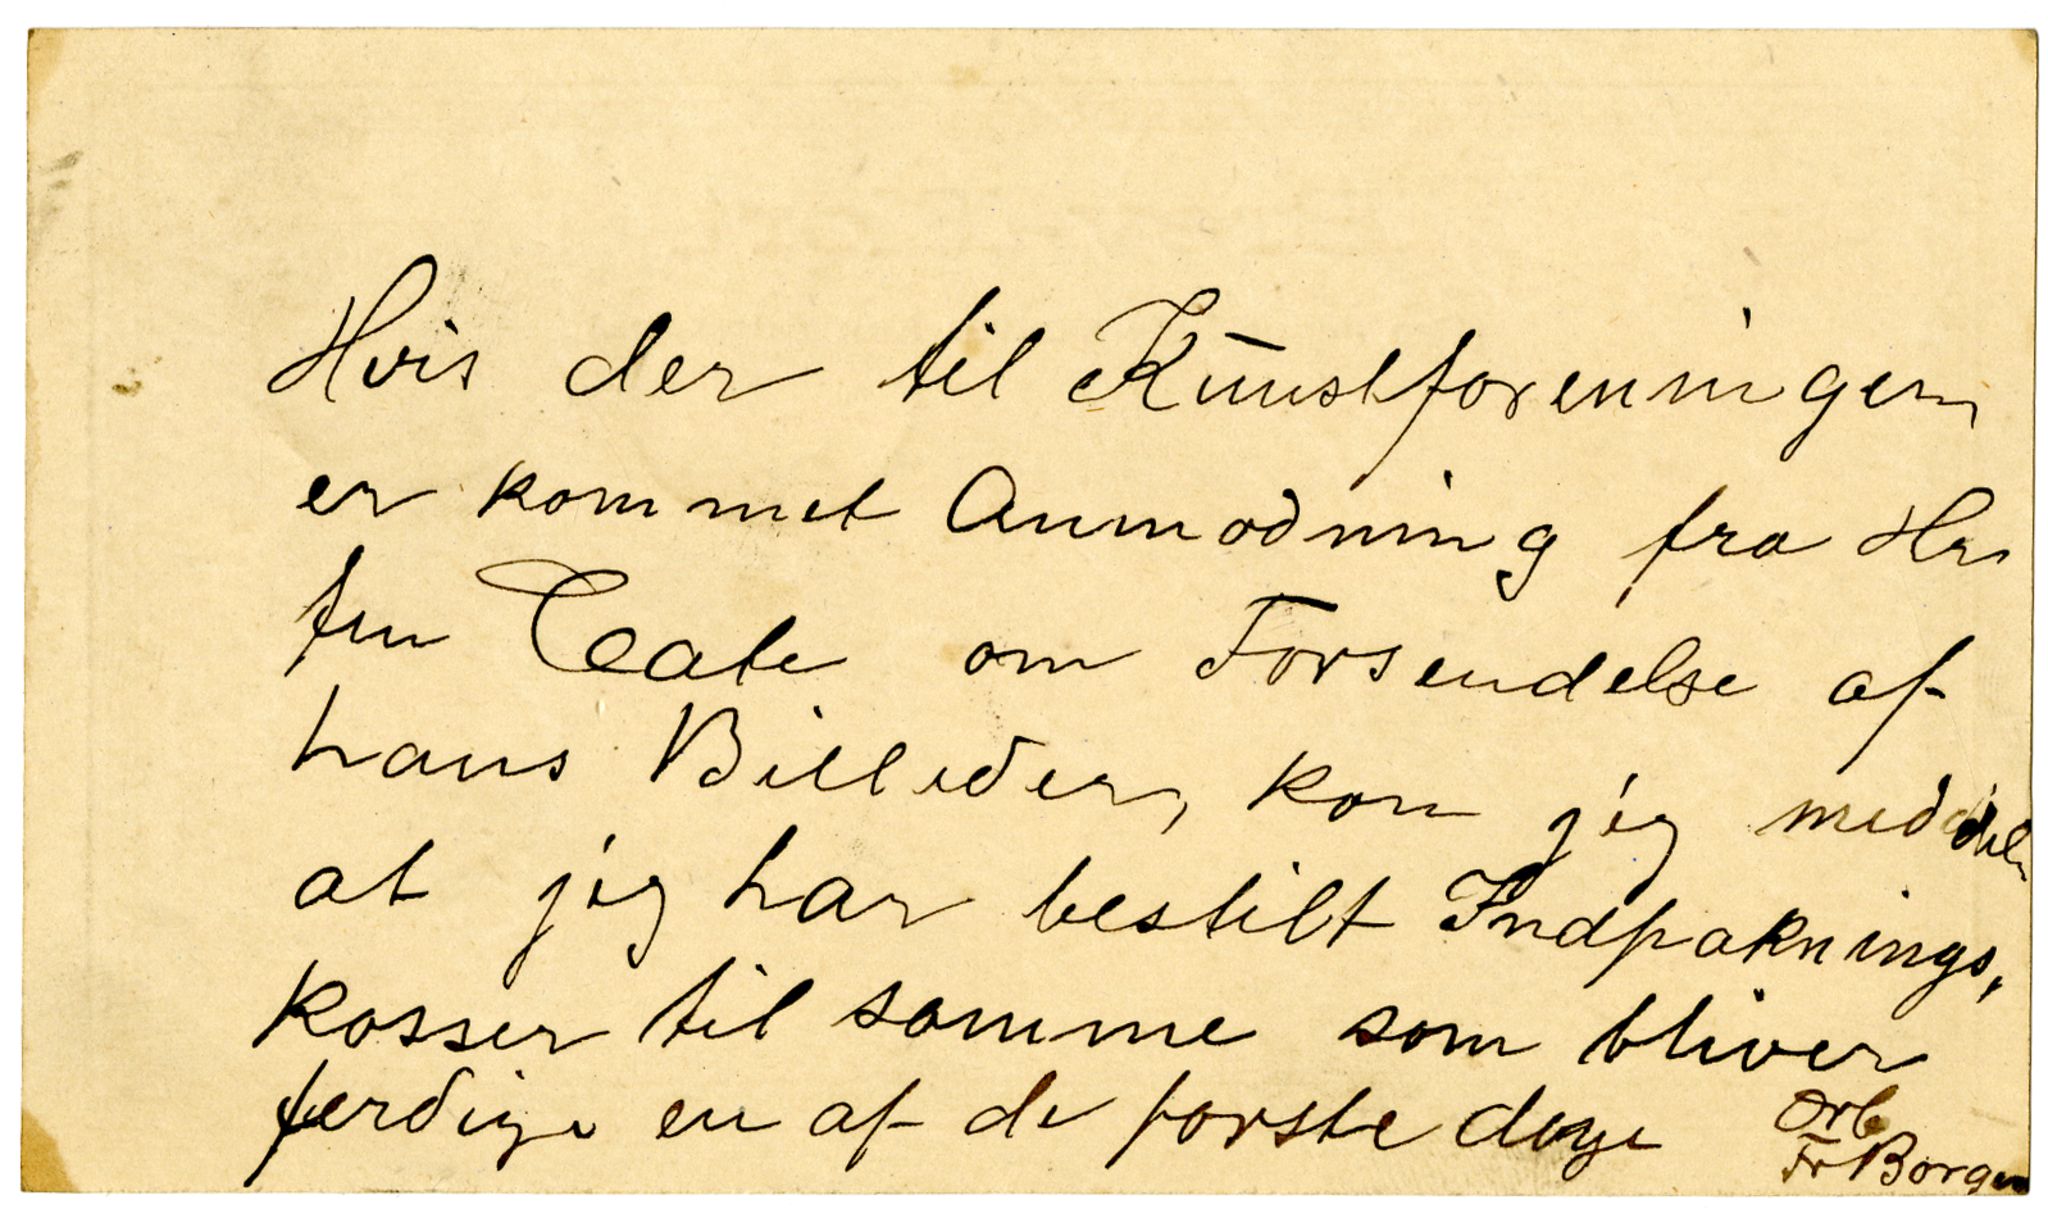 Hvis der til Kunstforeningen
er kommet Anmodning fra Hr
ten Cate om Forsendelse af
hans Billeder, kan jeg meddele
at jeg har bestilt Indpaknings,
kasser til samme som bliver
færdige en af de første dage Orb
Fr Borgen